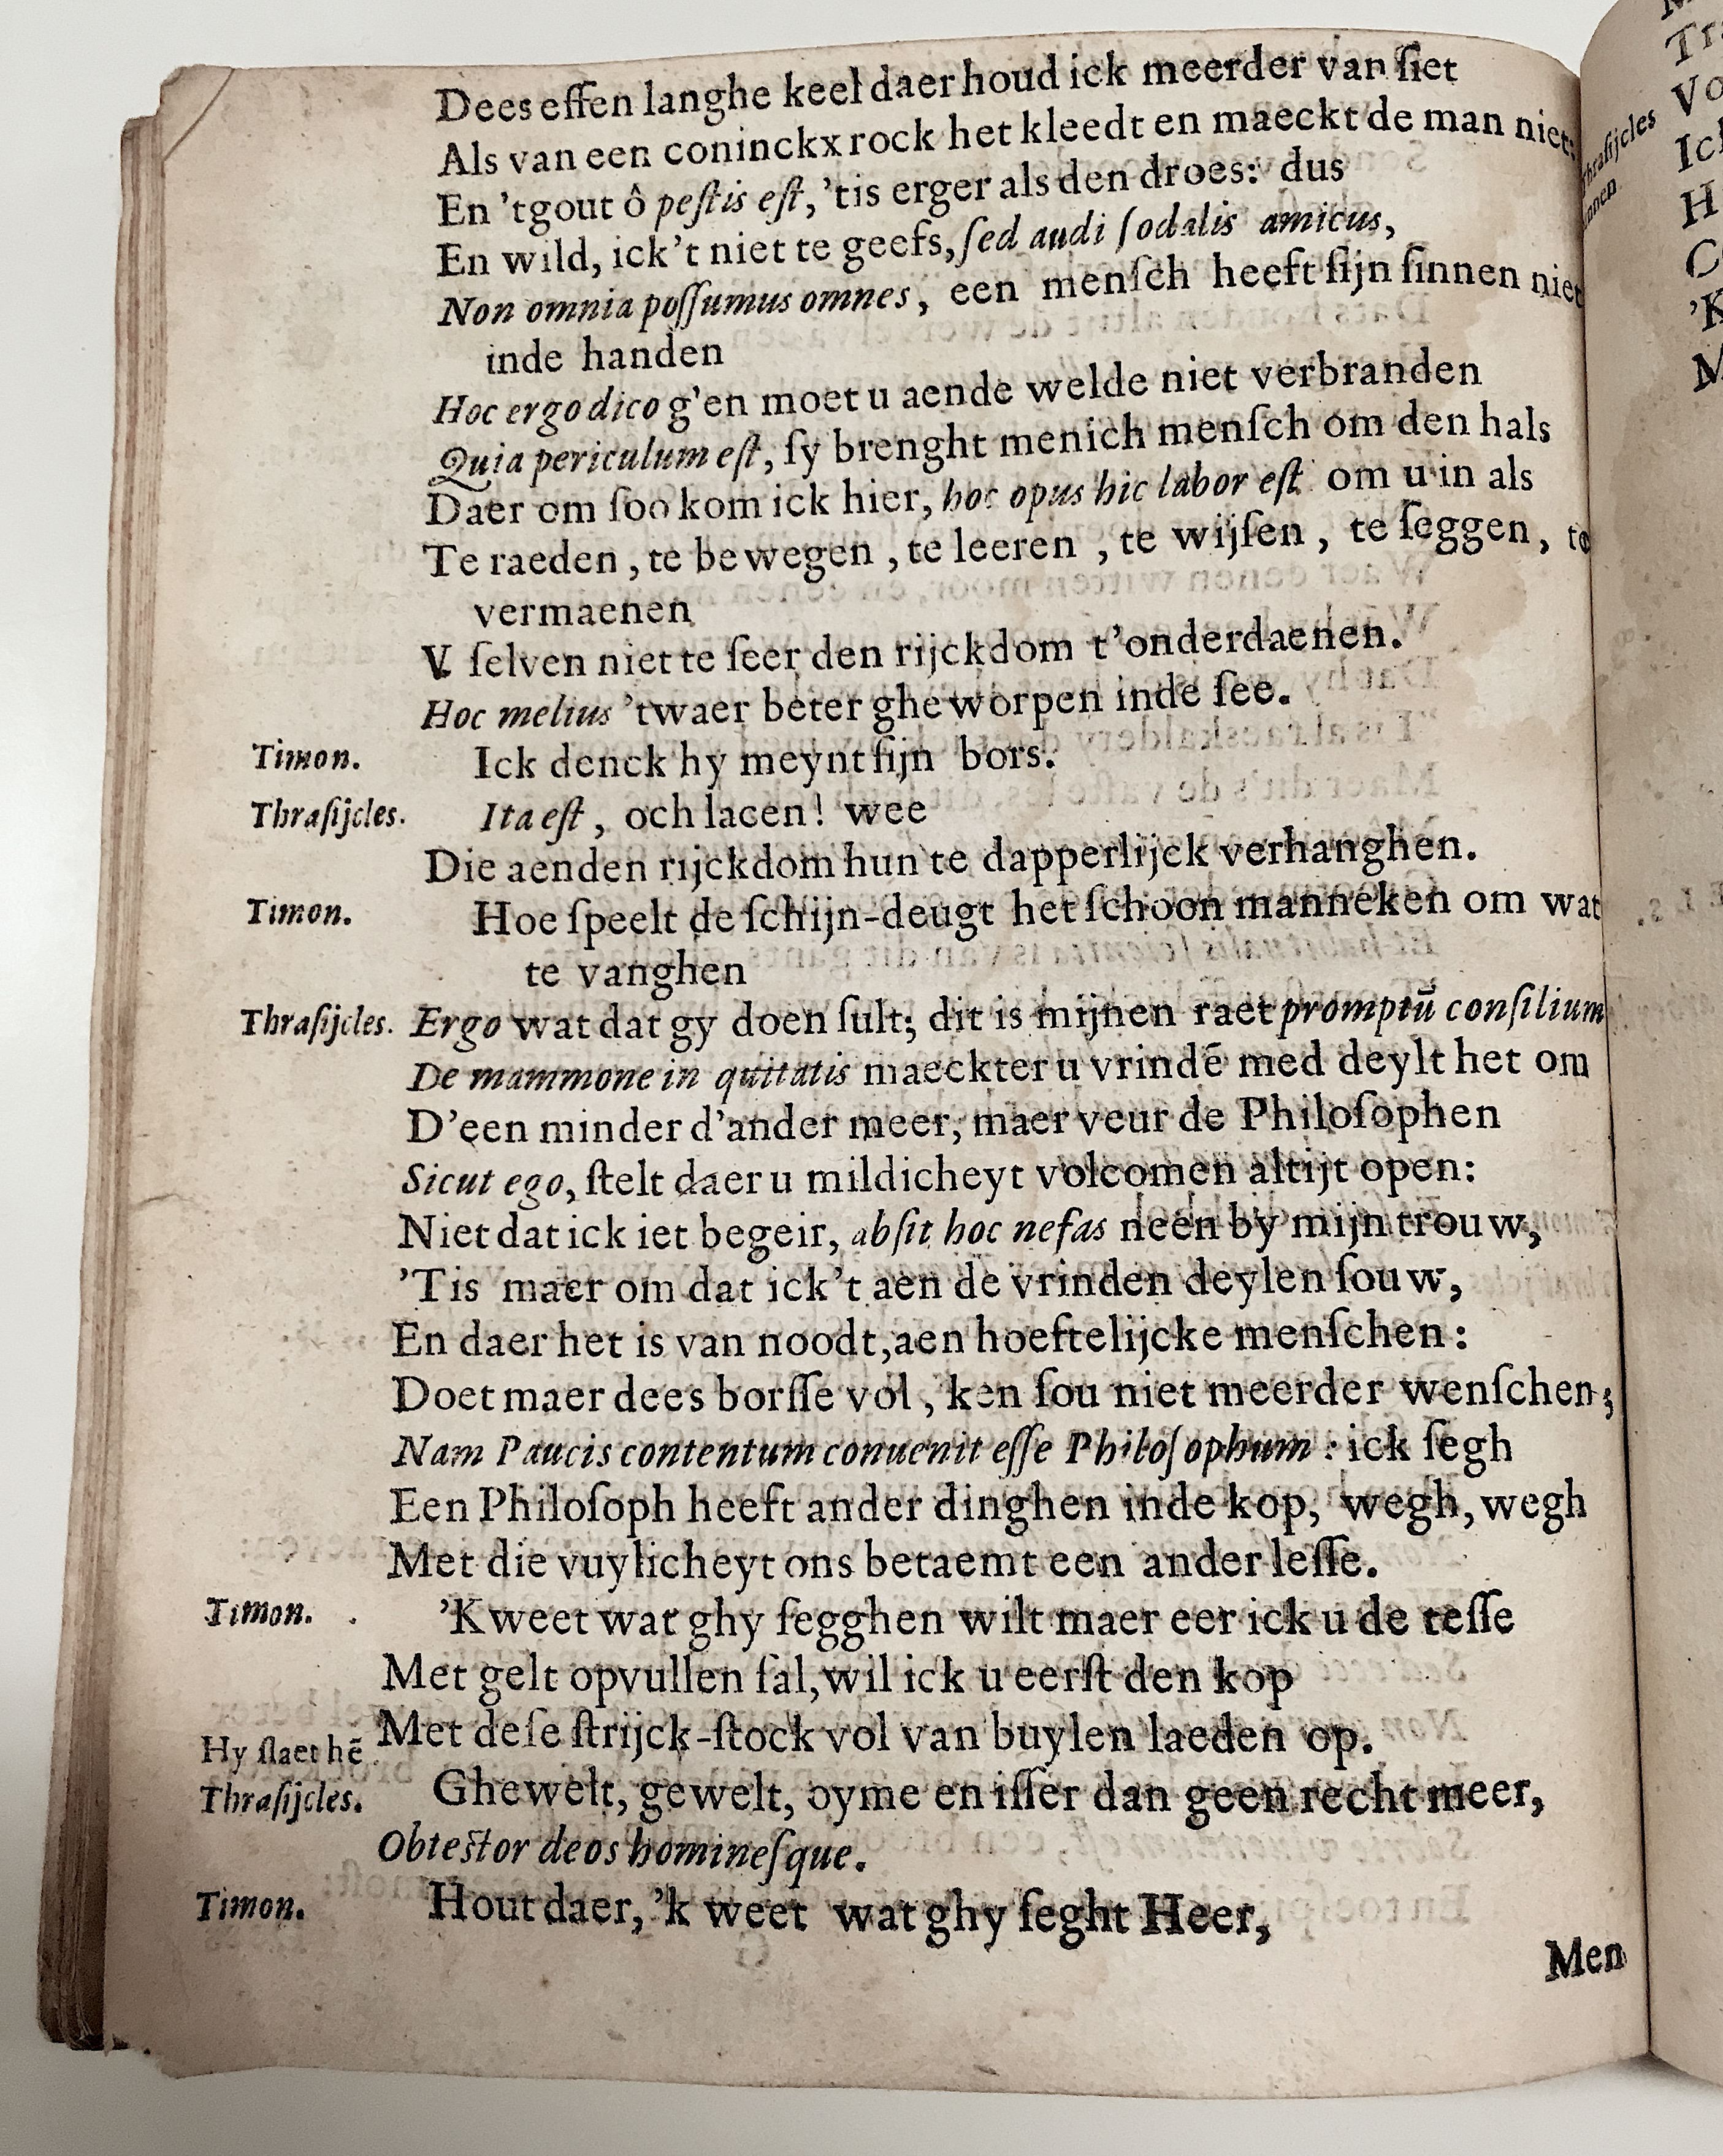 Dees effen langhe keel daer houd ick meerder van ſiet
Als van een coninckx rock het kleedt en maeckt de man niet.
En 'tgout ô peſtis eſt, 'tis erger als den droes: dus
En wild, ick't niet te geefs, ſed audi ſodalis amicus,
Non omnia poſſumus omnes, een menſch heeft ſijn ſinnen niet
inde handen
Hoc ergo dico g'en moet u aende welde niet verbranden
Quia periculum eſt, ſy brenght menich menſch om den hals
Daer om ſoo kom ick hier, hoc opus hic labor eſt om u in als
Te raeden, te bewegen, te leeren, te wijſen, te ſeggen, te
vermaenen
V ſelven niet te ſeer den rijckdom t'onderdaenen.
Hoc melius 'twaer beter gheworpen inde ſee.
Timon. Ick denck hy meynt ſijn bors.
Thraſijcles. Ita eſt, och lacen! wee
Die aenden rijckdom hun te dapperlijck verhanghen.
Timon. Hoe ſpeelt de ſchijn-deugt het ſchoon manneken om wat
te vanghen
Thraſijcles. Ergo wat dat gy doen ſult; dit is mijnen raet promptū conſilium
De mammone in quitatis maeckter u vrindē med deylt het om
D'een minder d'ander meer, maer veur de Philoſophen
Sicut ego, ſtelt daer u mildicheyt volcomen altijt open:
Niet dat ick iet begeir, abſit hoc nefas neen by mijn trouw,
'Tis maer om dat ick't aen de vrinden deylen ſouw,
En daer het is van noodt, aen hoeftelijcke menſchen:
Doet maer dees borſſe vol, ken ſou niet meerder wenſchen;
Nam Paucis contentum conuenit eſſe Philoſophum: ick ſegh
Een Philoſoph heeft ander dinghen inde kop, wegh, wegh
Met die vuylicheyt ons betaemt een ander leſſe.
Timon. 'K weet wat ghy ſegghen wilt maer eer ick u de teſſe
Met gelt opvullen ſal, wil ick u eerſt den kop
Met deſe ſtrijck-ſtock vol van buylen laeden op.
Hy ſlaet hē
Thraſijcles. Ghewelt, gewelt, oyme en iſſer dan geen recht meer,
Obteſtor deos homineſque.
Timon. Hout daer, 'k weet wat ghy ſeght Heer,
Men
Thraſijcles
Ick